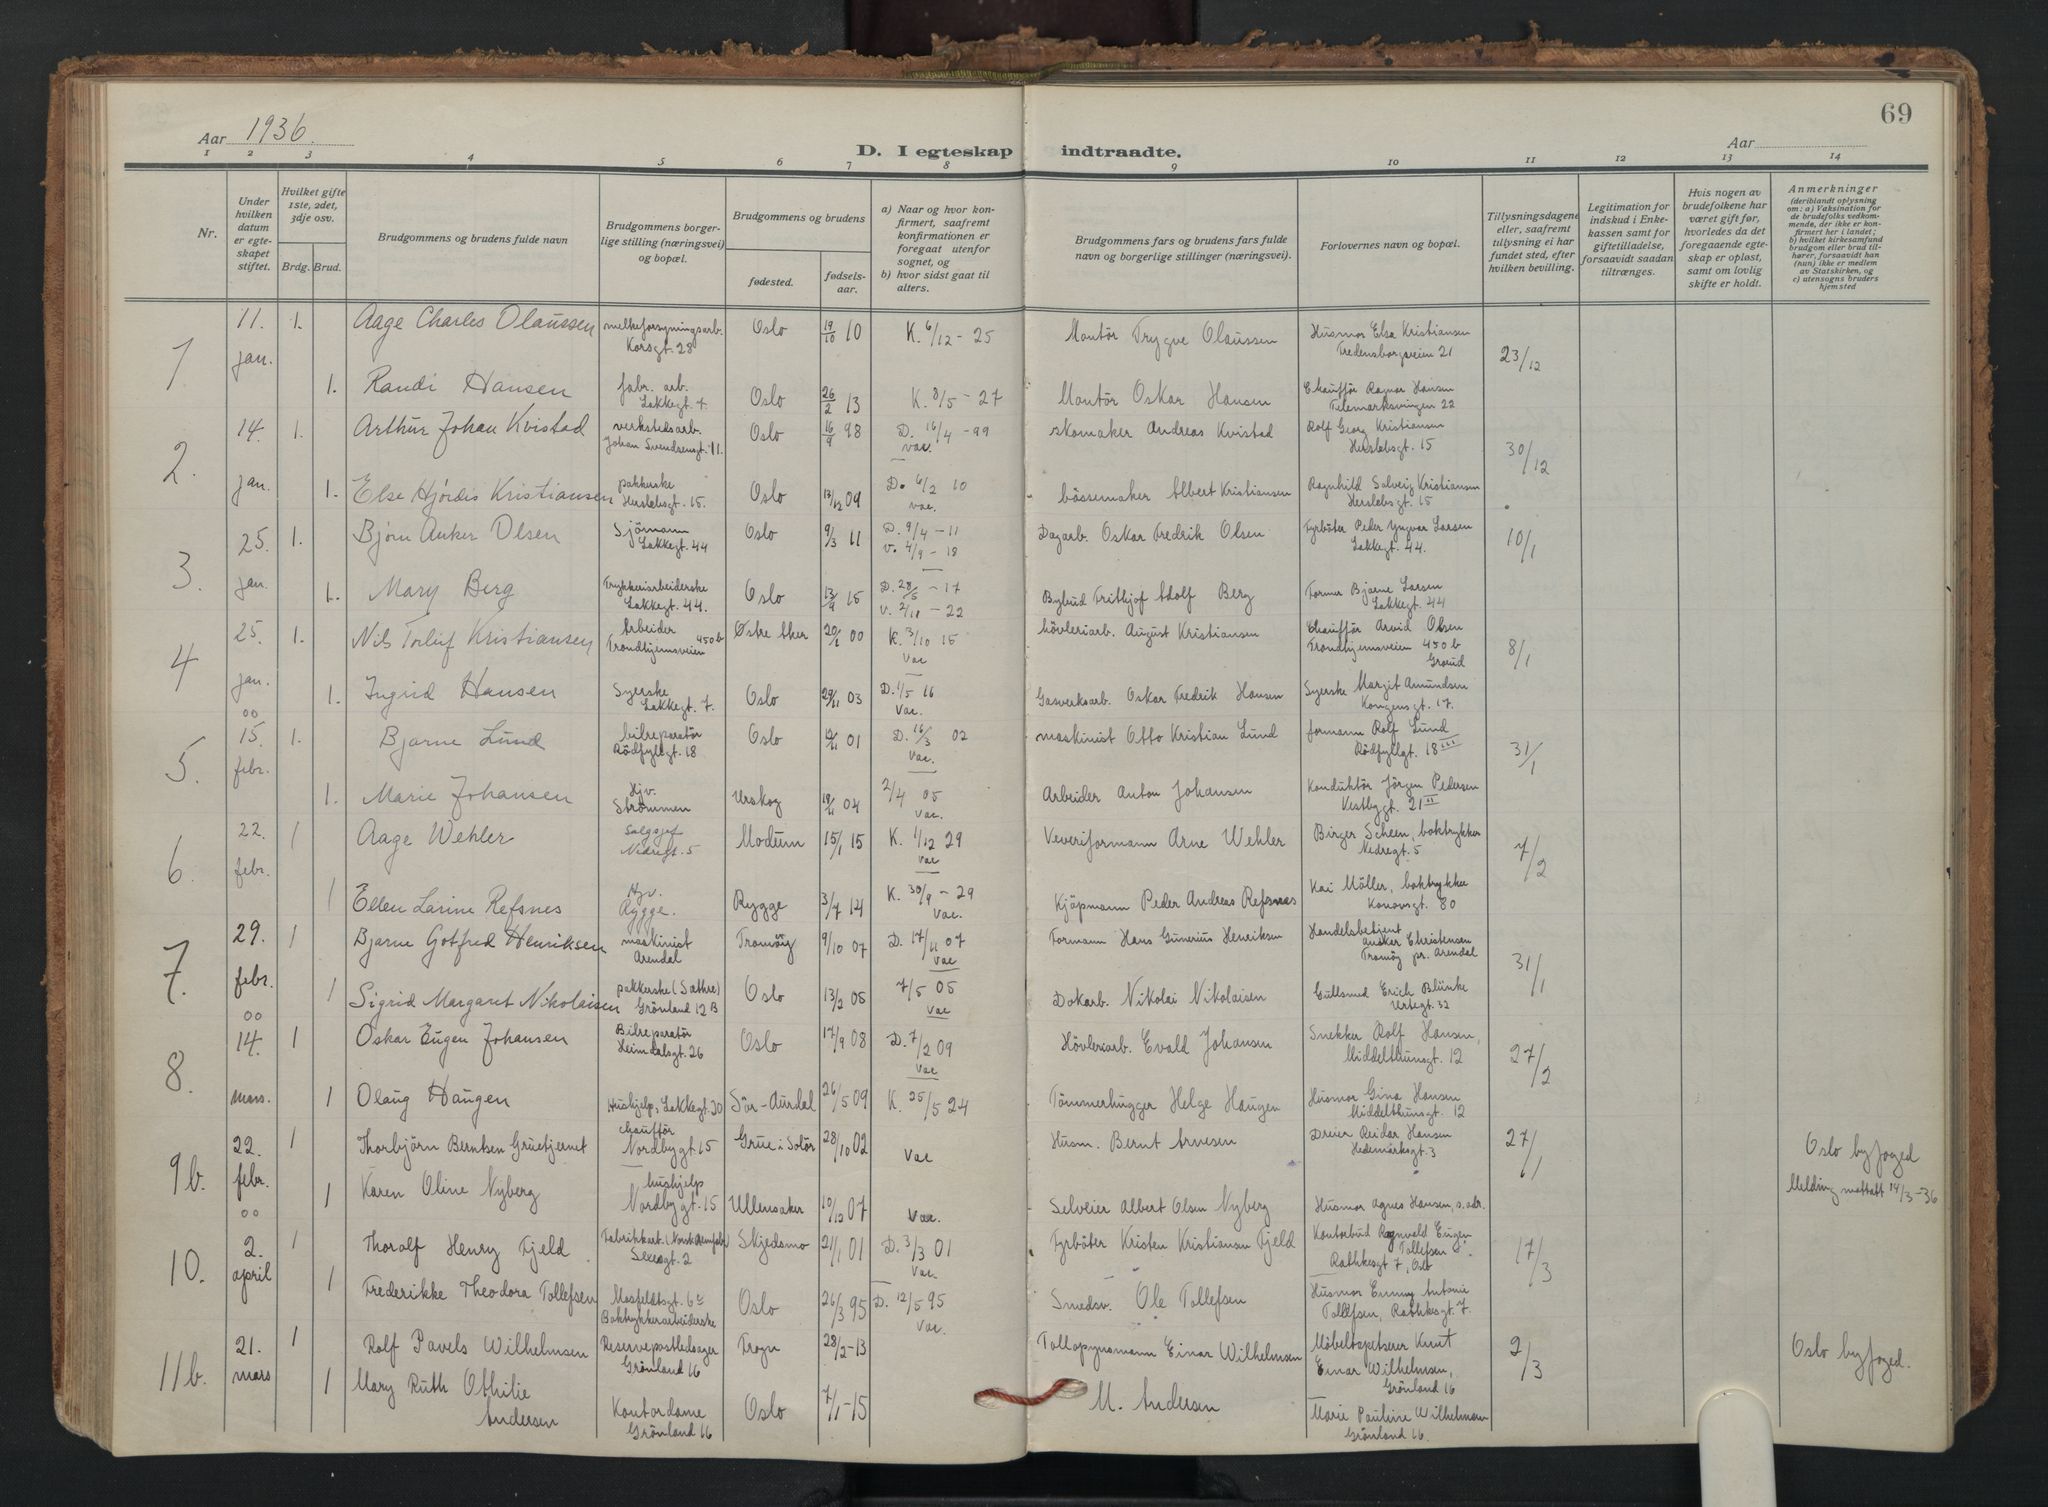 69
Aar 1936.
D. I egteskap indtraadte.
Aar
1 2 3 4 5 6 7 8 9 10 11 12 13 14
Nr.
Under hvilken datum er egteskapet stiftet.
Hvilket gifte 1ste, 2det, 3dje osv.
Brdg. Brud.
Brudgommens og brudens fulde navn
Brudgommens borgerlige stilling (næringsvei) og bopæl.
Brudgommens og brudens
fødested.
fødselsaar.
a) Naar og hvor konfirmert, saafremt konfirmationen er foregaat utenfor sognet, og
b) hvor sidst gaat til alters.
Brudgommens fars og brudens fars fulde navn og borgerlige stillinger (næringsvei).
Forlovernes navn og bopæl.
Tillysningsdagene eller, saafremt tillysning ei har fundet sted, efter hvilken bevilling.
Legitimation for indskud i Enkekassen samt for giftetilladelse, forsaavidt saadan tiltrænges.
Hvis nogen av brudefolkene har været gift før, hvorledes da det foregaaende egteskap er opløst, samt om lovlig skifte er holdt.
Anmerkninger
(deriblandt oplysning om: a) Vaksination for de brudefolks vedkommende, der ikke er konfirmert her i landet; b) hvilket kirkesamfund brudgom eller brud tilhører, forsaavidt han (hun) ikke er medlem av Statskirken, og c) utensogns bruders hjemsted
1 11. jan. 1. Aage Charles Olaussen melkeforsyningsarb. Korsgt. 28 Oslo 19/10 10 K. 6/12 - 25 Montör Trygve Olaussen Husmor Elsa Kristiansen Fredensborgveien 21 23/12
1. Randi Hansen fabr. arb. Lakkegt. 7. Oslo 26/2 13 K. 8/5 - 27 Montör Oskar Hansen Chauffør Ragnar Hansen Telemarksvingen 22
2. 14. jan. 1. Arthur Johan Kvistad verkstedsarb. Johan Svendsensgt. 11. Oslo 16/9 98 D. 16/4 - 99 vac. skomaker Andreas Kvistad Rolf Georg Kristiansen Herslebsgt. 15 30/12
1. Else Hjørdis Kristiansen pakkerske Herslebsgt. 15. Oslo 13/12 09 D. 6/2 10 vac. bössemaker Albert Kristiansen Ragnhild Solveig Kristiansen Herslebsgt. 15
3. 25. jan. 1. Bjørn Anker Olsen Sjömann Lakkegt. 44 Oslo 9/3 11 D. 9/4 - 11 v. 4/9 - 18 Dagarb. Oskar Fredrik Olsen Fyrböter Peder Yngvar Larsen Lakkegt. 44. 10/1
1. Mary Berg Trykkeriarbeiderske Lakkegt. 44. Oslo 13/9 15 D. 28/5 - 17 v. 2/10 - 22 Bybud Frithjof Adolf Berg Former Bjarne Larsen Lakkegt. 44
4 25. jan. 1. Nils Torleif Kristiansen Arbeider Trondhjemsveien 450 b Østre Aker 20/1 00 K. 3/10 15 Vac hövleriarb. August Kristiansen Chauffør Arvid Olsen Trondhjemsveien 450 b Grorud 8/1
1. Ingrid Hansen Syerske Lakkegt. 7. Oslo 29/11 03 D. 1/5 16 Vac. Gasverksarb. Oskar Fredrik Hansen Syerske Margit Amundsen Kongensgt. 17.
5. 15. febr. 1. Bjarne Lund bilreparatör Rödfyllgt. 18 Oslo 01 D. 16/3 02 Vac. maskinist Otto Kristian Lund formann Rolf Lund Rödfyllgt. 18 III 31/1
1. Marie Johansen Hjv. Strömmen Urskog 04 2/4 05 Vac. Arbeider Anton Johansen Konduktör Jörgen Pedersen Vestbygt. 21 II
6. 22. febr. 1 Aage Wehler Salgssjef Nedregt. 5 Modum 15/1 15 K. 1/12 29 vac Veveriformann Arne Wehler Birger Scheen, boktrykker Nedregt. 5 7/2
1 Ellen Larine Refsnes Hjv. Rygge. Rygge 3/7 14 K. 30/9 - 29 Vac. Kjøpmann Peder Andreas Refsnes Kai Möller, boktrykker Konowsgt. 80
7. 29. febr. 1 Bjarne Gotfred Henriksen maskinist Arendal Tromöy 9/10 07 D. 17/11 07 Vac Formann Hans Gunerius Henriksen Handelsbetjent Anskar Christensen Tromöy pr. Arendal 31/1
1 Sigrid Margaret Nikolaisen pakkerske (Sæthre) Grönland 12 B Oslo 13/2 05 7/5 05 vac Dokarb. Nikolai Nikolaisen Gullsmed Erich Blünke Urtegt. 32
8. 14. mars. 1 Oskar Eugen Johansen Bilreparatör Heimdalsgt. 26 Oslo 17/9 08 D. 7/2 09 Vac Hövleriarb. Evald Johansen Snekker Rolf Hansen, Middelthunsgt. 12 27/2
1 Olaug Haugen Hushjelp, Lakkegt. 20 Sör-Aurdal 26/5 09 K. 25/5 24 Tömmerhugger Helge Haugen Husmor Gina Hansen Middelthunsgt. 12
9 b. 22. febr. 1 Thorbjörn Berntsen Gruetjernet chauffør Nordbygt. 15 Grue i Solör 28/10 02 Vac Husm. Bernt Arnesen Dreier Reidar Hansen Hedemarksgt. 3 27/1 Oslo byfoged Melding mottatt 14/3-36
1 Karen Oline Nyberg hushjelp Nordbygt. 15 Ullensaker 10/12 07 Vac. Selveier Albert Olsen Nyberg Husmor Agnes Hansen, s. adr.
10. 2. april 1 Thoralf Henry Fjeld Skjedsmo 21/1 01 D. 3/3 01 Vac. Fyrböter Kristen Kristiansen Fjeld Kontorbud Ragnvald Eugen Tollefsen Rathkesgt 7, Oslo 17/3
1 Frederikke Theodora Tollefsen Boktrykkerarbeiderske Oslo 26/3 95 D. 12/5 95 Vac. Smedsv. Ole Tollefsen Husmor Emmy Antonie Tollefsen, Rathkesgt. 7.
11 b. 21. mars 1 Rolf Pavels Wilhelmsen Reservepostbedsager Grönland 16 Frogn 28/2-13 Tollopsynsmann Einar Wilhelmsen Möbeltapetserer Kurt Einar Wilhelmsen, Grönland 16 2/3 Oslo byfoged.
1 Mary Ruth Othilie Andersen Kontordame Grönland 16 Oslo 7/1-15 M. Andersen Marie Pauline Wilhelmsen Grönland 16.